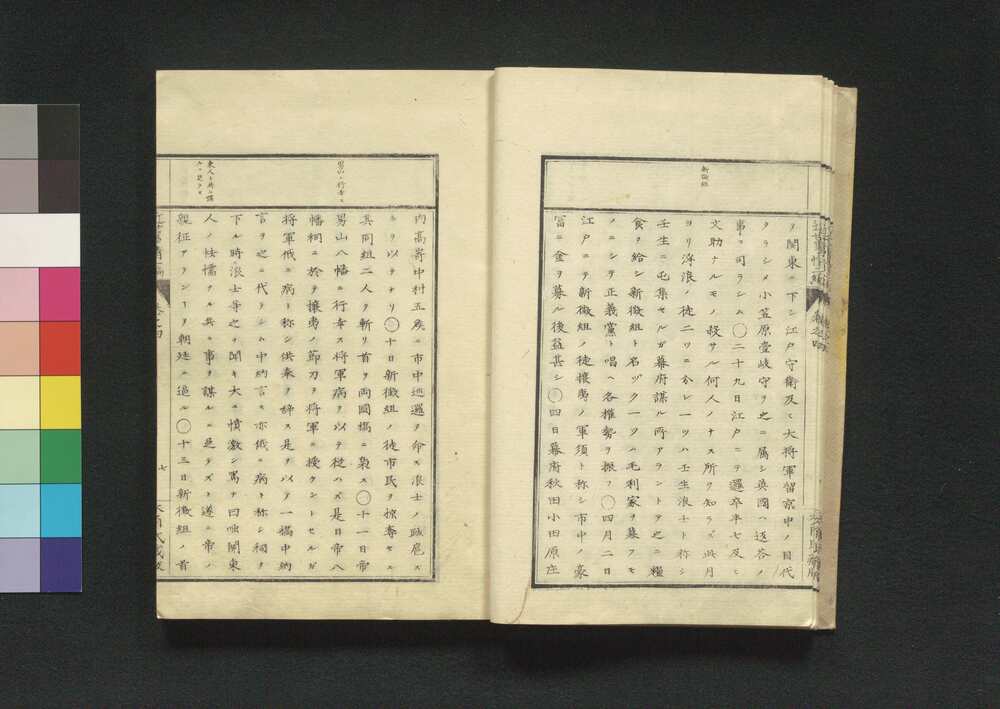 新徴組
ヲ関東ニ下シ江戸守衛及ヒ大将軍留京中ノ目代
タラシメ小笠原壹岐守ヲ之ニ属シ英國ヘ返答ノ
事ヲ司ラシム〇二十九日江戸ニテ邏卒半七及ヒ
文助ナルモノ殺サル何人ノナス所ヲ知ラズ此月
ヨリ浮浪ノ徒二ツニ分レ一ツハ壬生浪士ト称シ
壬生ニ屯集セルガ幕府謀ル所アラントテ之ニ糧
食ヲ給シ新徴組ト名ヅク一ツハ毛利家ヲ慕フモ
ノニシテ正義黨ト唱ヘ各権勢ヲ振フ〇四月二日
江戸ニテ新徴組ノ徒攘夷ノ軍須ト称シ市中ノ豪
富ニ金ヲ募ル後益甚シ〇四日幕府秋田小田原庄
男山ノ行幸
東人共ニ謀
ルニ足ラズ
内高嵜中村五矦ニ市中巡邏ヲ命ズ浪士ノ跋扈ス
ルヲ以テナリ〇十日新徴組ノ徒市民ヲ掠奪セル
其同組二人ヲ斬リ首ヲ両國橋ニ梟ス〇十一日帝
男山八幡ニ行幸ス将軍病ヲ以テ従ハズ是日帝八
幡祠ニ於テ攘夷ノ節刀ヲ将軍ニ授ケントセルガ
将軍俄ニ病ト称シ供奉ヲ辞ス是ヲ以テ一橋中納
言ヲ之ニ代ラシム中納言モ亦俄ニ病ト称シ祠ヲ
下ル時ニ浪士等之ヲ聞キ大ニ憤激シ罵テ曰咄関東
人ノ怯懦ナル共ニ事ヲ謀ルニ足ラズト遂ニ帝ノ
親征アランヿヲ朝廷ニ迫ル〇十三日新徴組ノ首
七